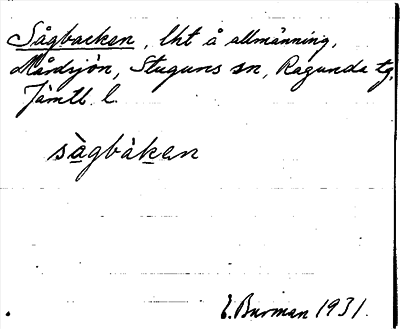 Sågbacken, lht å allmänning,
Mårdsjön, Stuguns sn, Ragunda tg,
Jämtl. l.
sàgbàken
E. Burman 1931.